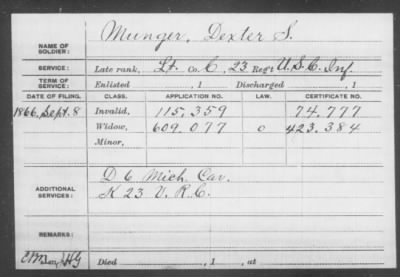 NAME OF SOLDIER: Munger, Dexter S.
SERVICE: Late rank, Lt. Co. C, 23 Reg't U.S.C. Inf.
TERM OF SERVICE: Enlisted , 1 Discharged , 1
DATE OF FILING. CLASS. APPLICATION NO. LAW. CERTIFICATE NO.
1866, Sept. 8 Invalid, 115.359 74.777
Widow, 609.077 o 423.384
Minor,
ADDITIONAL SERVICES: D 6 Mich. Cav.
K 23 V. R. C.
REMARKS:
Died , 1 , at